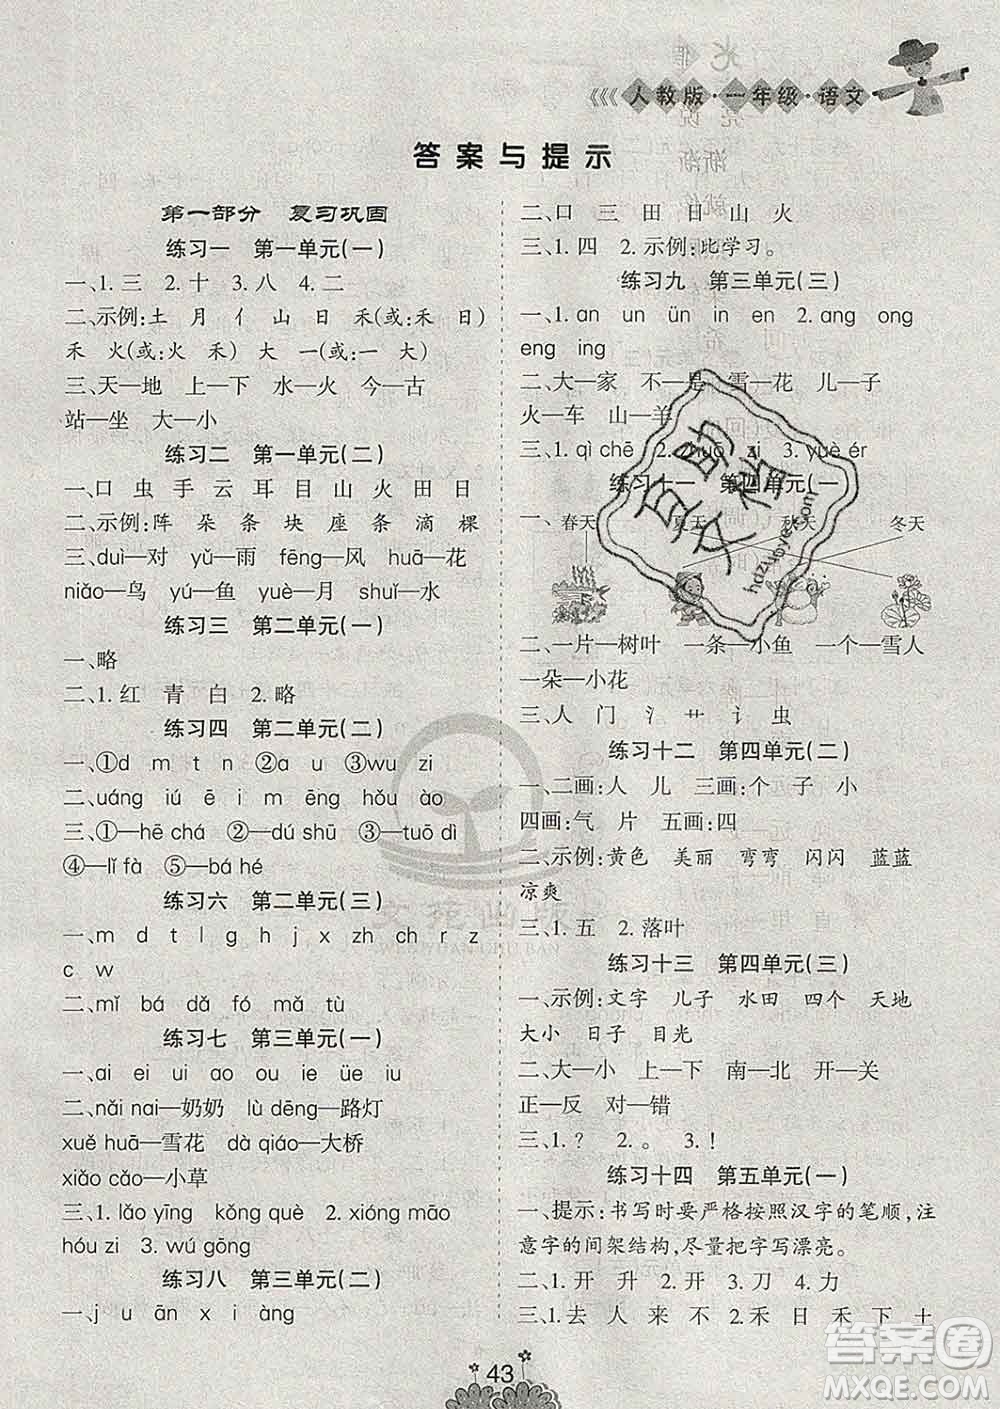 人教版·一年级·语文
答案与提示
第一部分 复习巩固
练习一 第一单元(一)
一、1.三 2.十 3.八 4.二
二、示例:土 月 亻 山 日 禾(或:禾 日)
禾 火(或:火 禾) 大 一(或:一 大)
三、天—地 上—下 水—火 今—古
站—坐 大—小
练习二 第一单元(二)
一、口 虫 手 云 耳 目 山 火 田 日
二、示例:阵 朵 条 块 座 条 滴 棵
三、duì—对 yǔ—雨 fēng—风 huā—花
niǎo—鸟 yú—鱼 yuè—月 shuǐ—水
练习三 第二单元(一)
一、略
二、1.红 青 白 2.略
练习四 第二单元(二)
一、①d m t n ②a u ③wu zi
二、uáng iú é im ēng hǒu ào
三、①—hē chá ②—dú shū ③—tuō dì
④—lǐ fà ⑤—bá hé
练习六 第二单元(三)
一、m d t l g h j x zh ch r z
c w
二、mǐ bá dǎ fó mǎ tù
练习七 第三单元(一)
一、ai ei ui ao ou iu ie üe iu
二、nǎi nai—奶奶 lù dēng—路灯
xuě huā—雪花 dà qiáo—大桥
xiǎo cǎo—小草
三、1. lǎo yīng kǒng què 2. xióng māo
hóu zi 3. wú gōng
练习八 第三单元(二)
一、j u ān x i àng
二、口 三 田 日 山 火
三、1.四 2.示例:此学习。
练习九 第三单元(三)
一、1. an un ün in en 2. ang ong
eng ing
二、大—家 不—是 雪—花 儿—子
火—车 山—羊
三、1. qì chē 2. zhuō zi 3. yuè ér
练习十一 第四单元(一)
一、春天 夏天 秋天 冬天
二、一片—树叶 一条—小鱼 一个—雪人
一朵—小花
三、人 门 氵 艹 讠 虫
练习十二 第四单元(二)
一、二画:人 儿 三画:个 子 小
四画:气 片 五画:四
二、示例:黄色 美丽 弯弯 闪闪 蓝蓝
凉爽
三、1.五 2.落叶
练习十三 第四单元(三)
一、示例:文字 儿子 水田 四个 天地
大小 日子 目光
二、大—小 上—下 南—北 开—关
正—反 对—错
三、1.? 2.。 3.!
练习十四 第五单元(一)
一、提示:书写时要严格按照汉字的笔顺,注
意字的间架结构,尽量把字写漂亮。
二、1.开 升 2.开 3.刀 4.力
三、1.去 人 来 不 2.禾 日 禾 下 土
43
互助文档
hdzuoye.com
答案圈
MXQE.COM